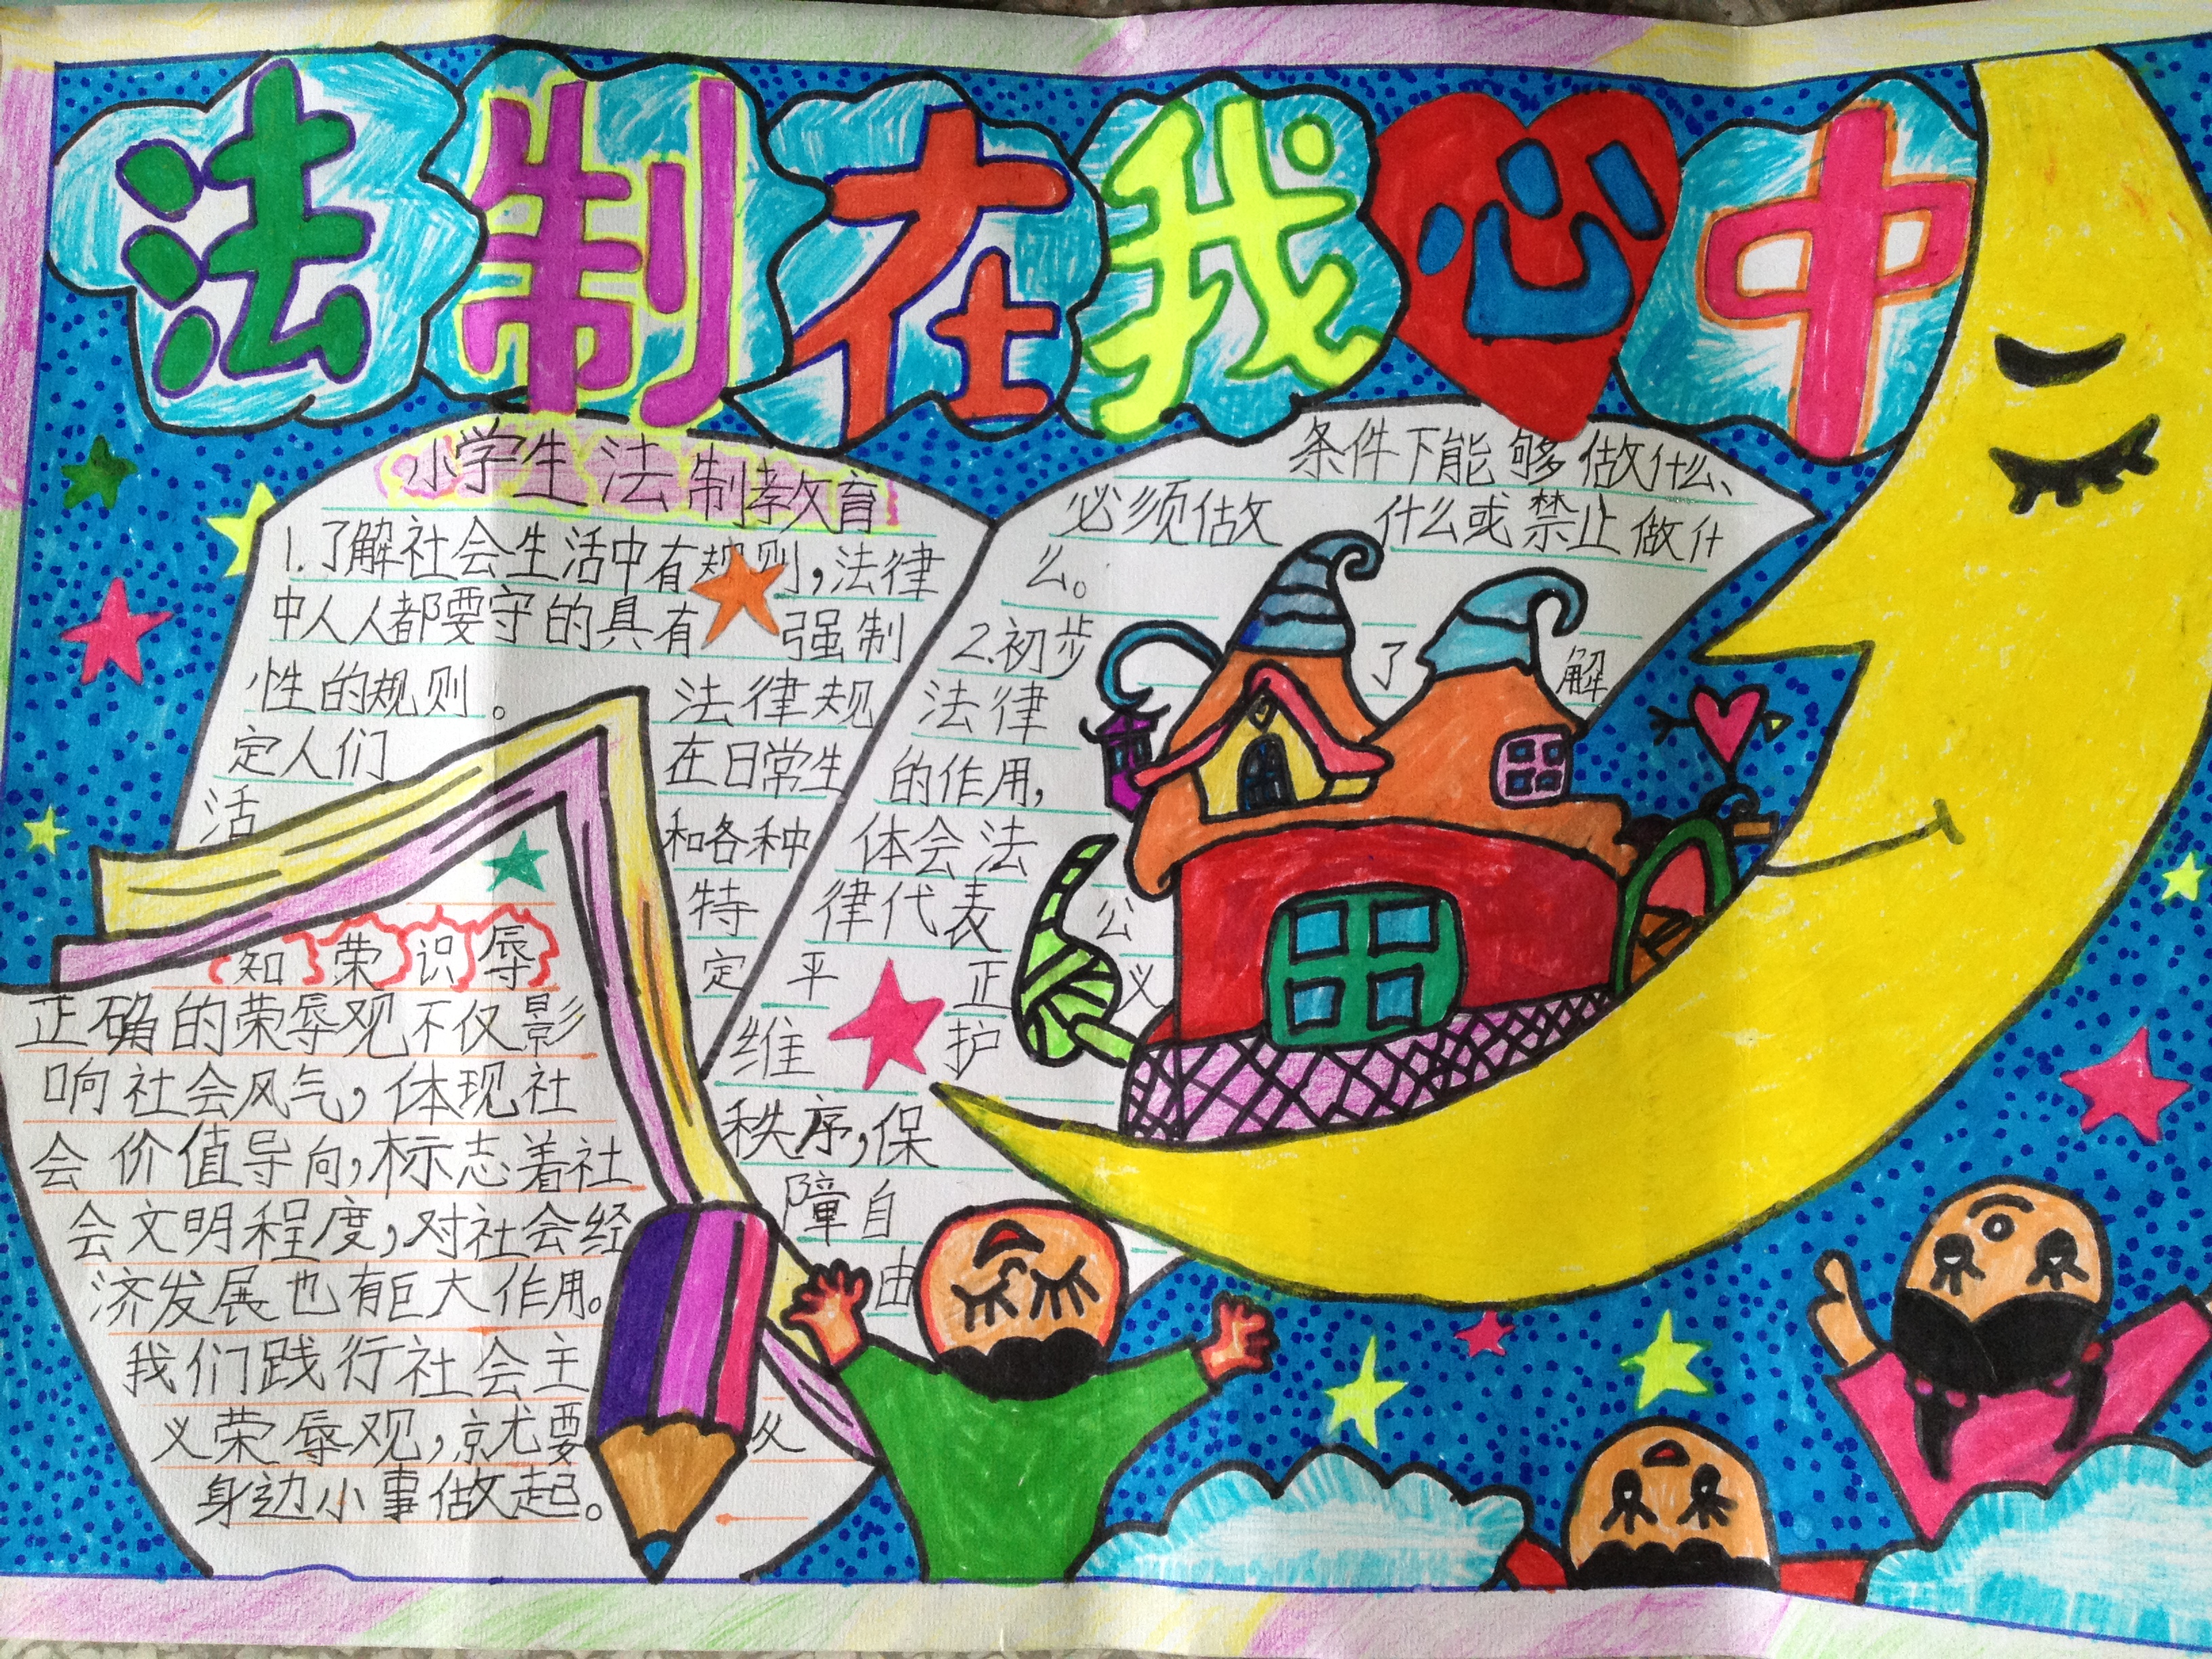 法制在我心中
小学生法制教育
1.了解社会生活中有规则,法律
中人人都要守的具有强制
性的规则。法律规
定人们在日常生
活和各种
特
定
条件下能够做什么,
必须做什么或禁止做什
么。
2.初步了解
法律
的作用,
体会法
律代表公
平正义
维护
秩序,保
障自
由
知荣识辱
正确的荣辱观不仅影
响社会风气,体现社
会价值导向,标志着社
会文明程度,对社会经
济发展也有巨大作用。
我们践行社会主
义荣辱观,就要
身边小事做起。